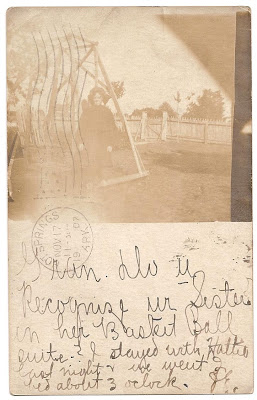 SPRINGS
NOV 17
ARK.
Gran. Do u
Recognise ur Sister
in her Basket Ball
suite? I stayed with Hattie
last night & we went
bed about 3 oclock.